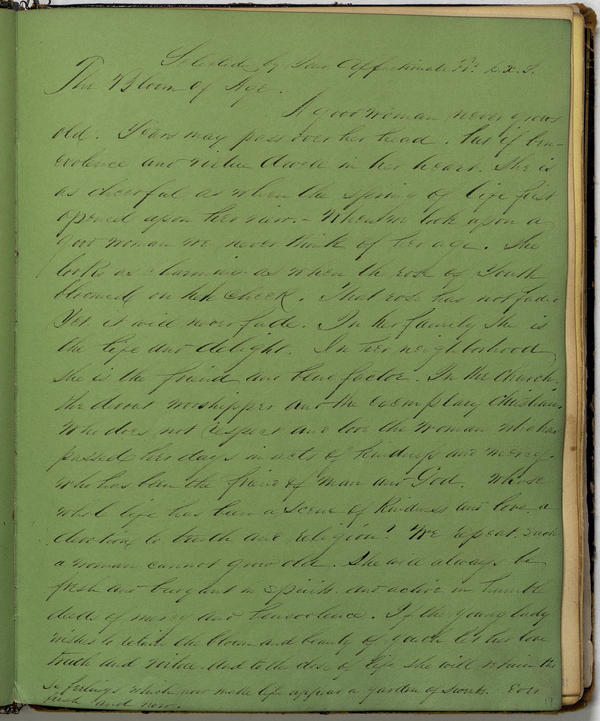 Selected by your Affectionate Fr. L.X.S.
The Bloom of Age.
A good woman never grows
old. Years may pass over her head. but if ben-
evolence and virtue dwell in her heart. She is
as cheerful as when the spring of life first
opened upon her view. When we look upon a
good woman we never think of her age. She
looks as charming as when the rose of Youth
bloomed on her cheek. That rose has not faded
Yet. it will never fade. In her family she is
the life and delight. In her neighborhood
she is the friend and benefactor. In the Church,
the devout worshipper and the exemplary Christian.
Who does not respect and love the woman who has
passed her days in acts of kindness and mercy.
who has been the friend of man and God. Whose
whole life has been a scene of kindness and love a
devotion to truth and religion! We repeat, such
a woman cannot grow old. She will always be
fresh and buoyant in spirits. and active in humble
deeds of mercy and benevolence. If the young lady
wishes to retain the bloom and beauty of youth let her love
truth and virtue. and to the close of life she will retain the
se feelings which now make life appear a garden of sweets. Ever
fresh and new.